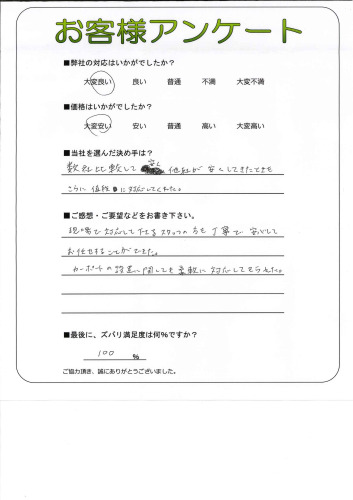 お客様アンケート
■弊社の対応はいかがでしたか？
大変良い 良い 普通 不満 大変不満
■価格はいかがでしたか？
大変安い 安い 普通 高い 大変高い
■当社を選んだ決め手は？
数社比較して 安く 他社が安くしてきたときも
さらに値段に対応してくれた。
■ご感想・ご要望などをお書き下さい。
現場で対応して下さるスタッフの方も丁寧で、安心して
お任せすることができました。
カーポートの設置に関しても柔軟に対応してもらえた。
■最後に、ズバリ満足度は何％ですか？
100 %
ご協力頂き、誠にありがとうございました。